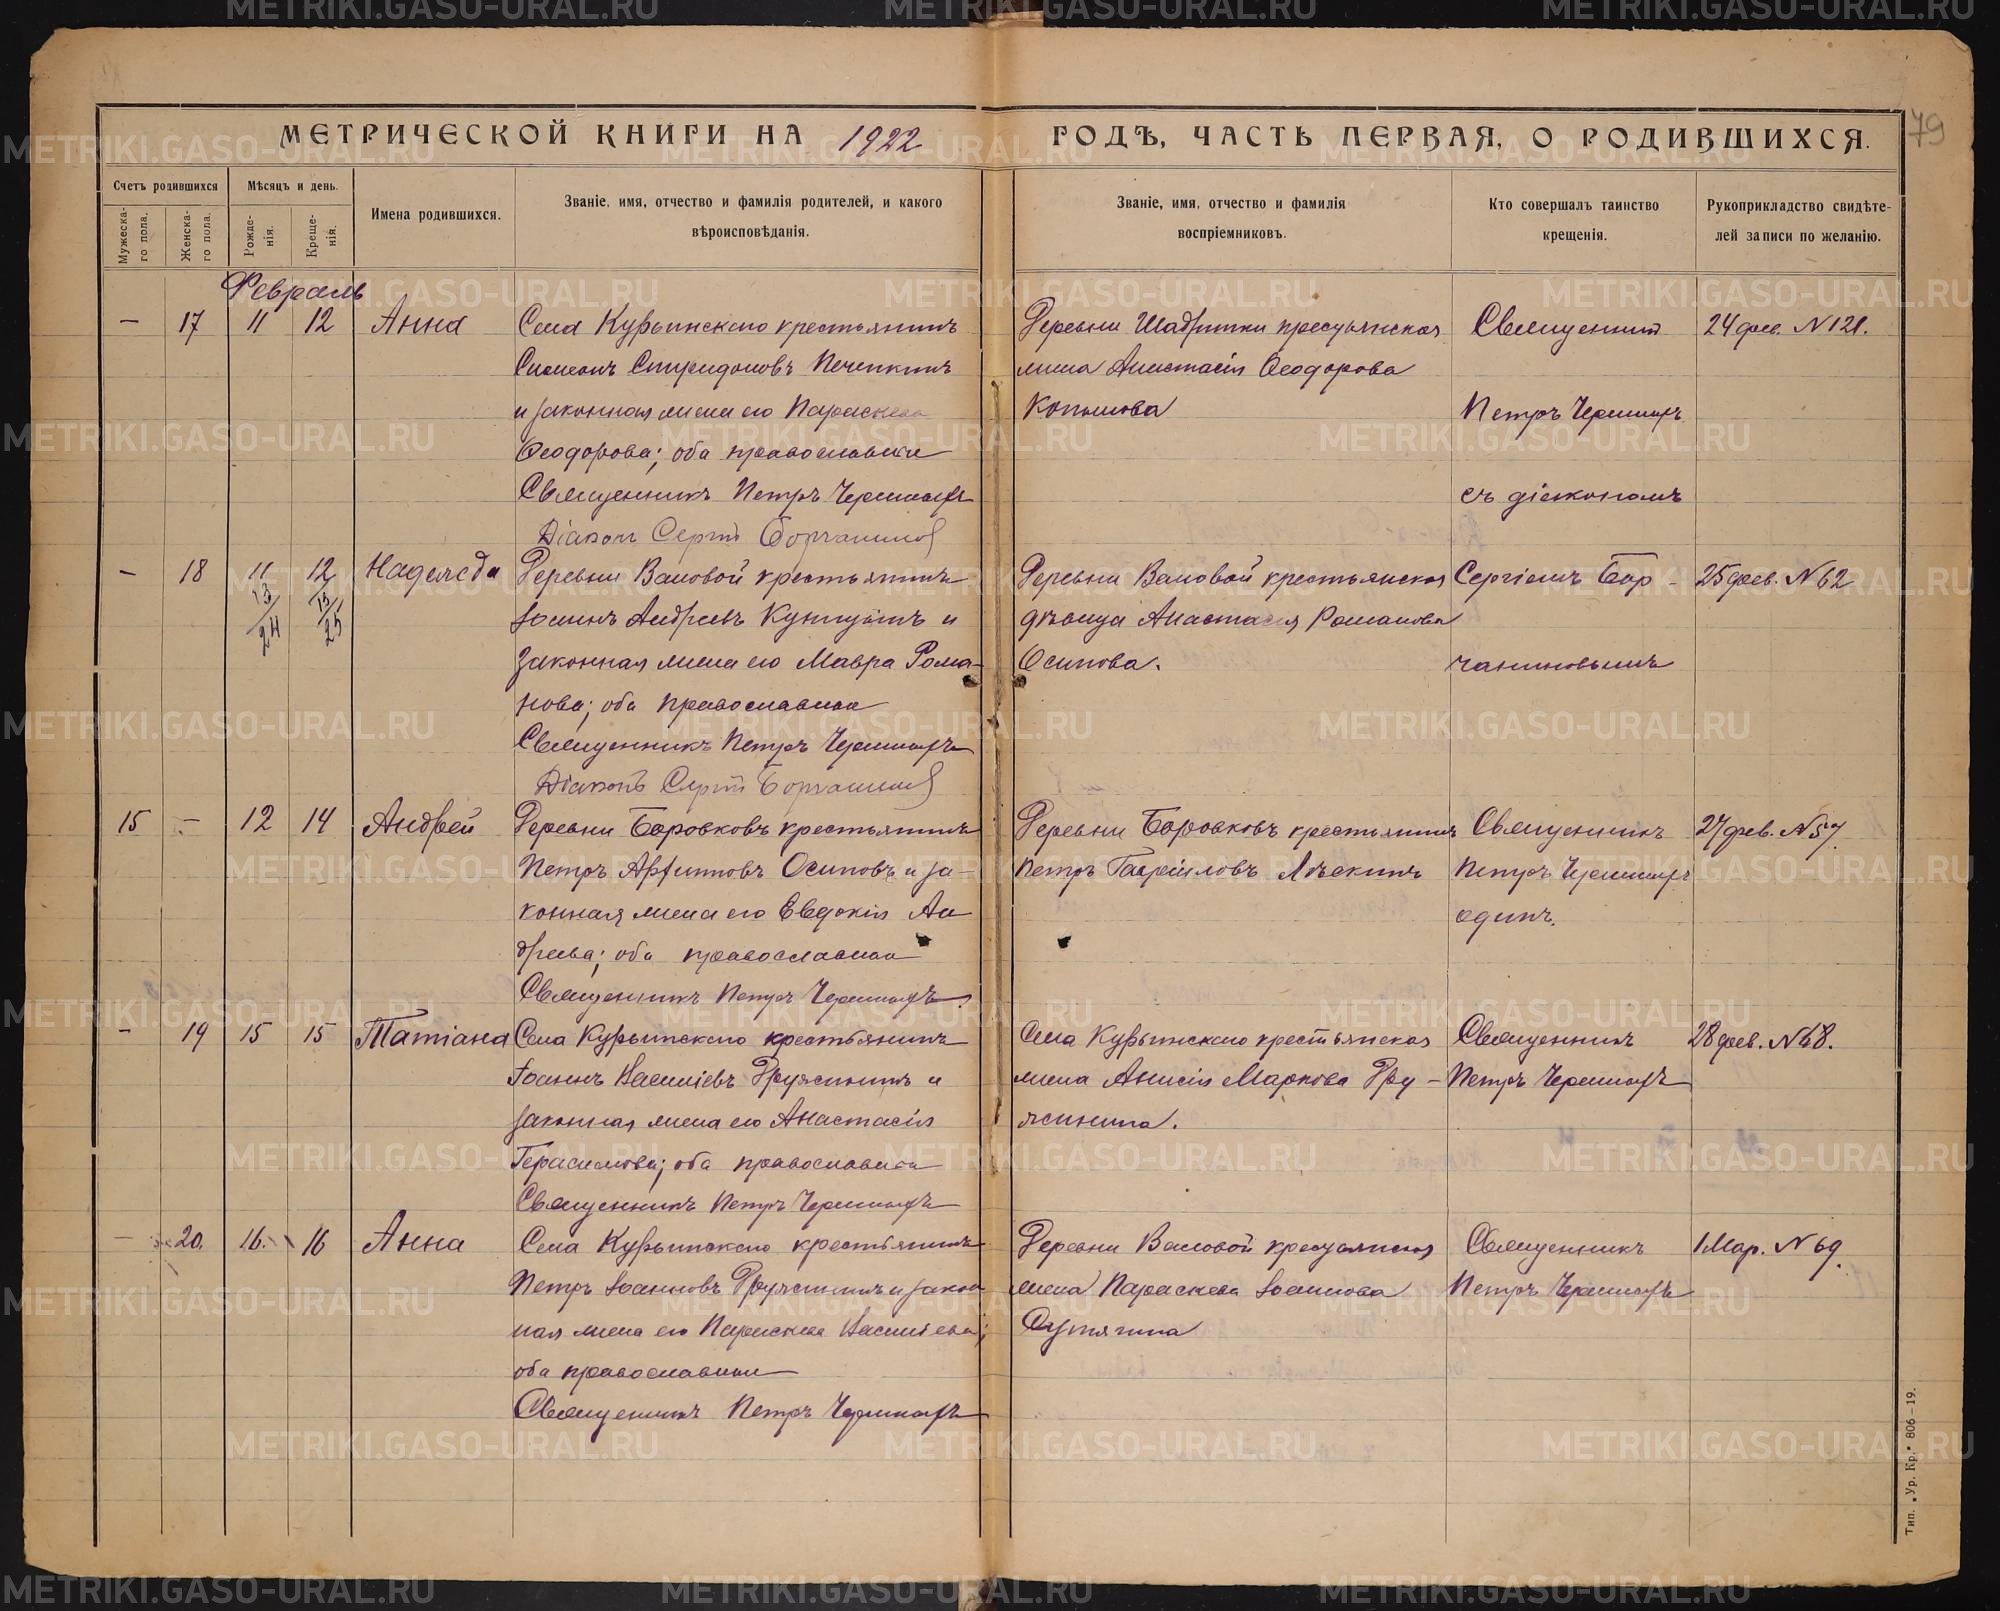 МЕТРИЧЕСКОЙ КНИГИ НА 1922 ГОДЪ, ЧАСТЬ ПЕРВАЯ, О РОДИВШИХСЯ.
79
Счетъ родившихся
Мужеска-го пола.
Женска-го пола.
Мѣсяцъ и день.
Рожде-нія.
Креще-нія.
Имена родившихся.
Званіе, имя, отчество и фамилія родителей, и какого
вѣроисповѣданія.
Званіе, имя, отчество и фамилія
воспріемниковъ.
Кто совершалъ таинство
крещенія.
Рукоприкладство свидѣте-
лей записи по желанію.
Февраль
— 17 11 12 Анна
Села Курьинскаго крестьянинъ
Симеонъ Спиридоновъ
и законная жена его Параскева
Ѳеодорова; оба православные
Священникъ Петръ
Діаконъ Сергій Борчаниновъ
крестьянская
жена Анастасія Ѳеодорова
Священникъ
Петръ
съ діакономъ
24 фев. N 121.
— 18 11 12 Надежда
13/24 13/25
Деревни Валовой крестьянинъ
Іоаннъ Андреевъ и
законная жена его Мавра Рома-
нова; оба православные
Священникъ Петръ
Діаконъ Сергій Борчаниновъ
Деревни Валовой крестьянская
дѣвица Анастасія Романова
Осипова.
Сергіемъ Бор-
чаниновымъ
25 фев. N 62
15 — 12 14 Андрей
Деревни Боровковъ крестьянинъ
Петръ Осиповъ и за-
конная жена его Евдокія Ан
дреева; оба православные
Священникъ Петръ
Деревни Боровковъ крестьянинъ
Петръ Гавріиловъ
Священникъ
Петръ
одинъ.
27 фев. N 57.
— 19 15 15 Татіана
Села Курьинскаго крестьянинъ
Іоаннъ Василіевъ Гружинъ и
законная жена его Анастасія
Герасимова; оба православные
Священникъ Петръ
Села Курьинскаго крестьянская
жена Анисія Маркова
Священникъ
Петръ
28 фев. N 68.
— 20. 16. 16 Анна
Села Курьинскаго крестьянинъ
Петръ Іоанновъ и закон
ная жена его Параскева Васильева;
оба православные
Священникъ Петръ
Деревни Валовой крестьянская
жена Параскева Іоаннова
Сутягина
Священникъ
Петръ
1 Мар. N 69.
Тип. „Ур. Кр." 806—19.
METRIKI.GASO-URAL.RU